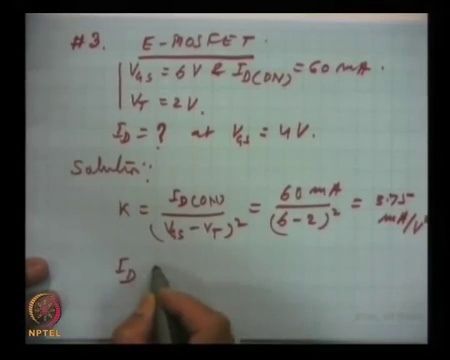 #3. E-MOSFET.
V_GS = 6V & I_D(ON) = 60 mA.
V_T = 2V.
I_D = ? at V_GS = 4V.
Solution:
K = I_D(ON) / (V_GS - V_T)^2 = 60 mA / (6-2)^2 = 3.75 mA/V^2
I_D
NPTEL